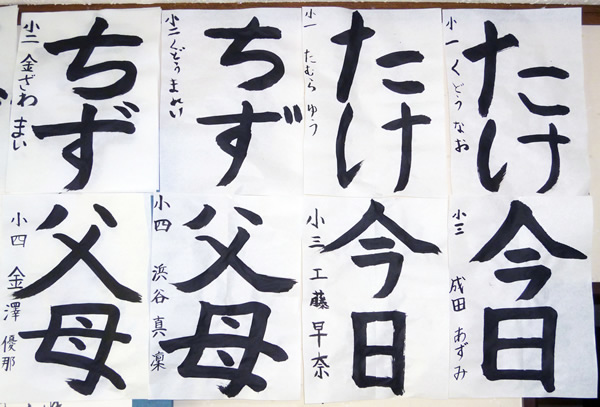 たけ
小一 くどう なお
たけ
小一 たむら ゆう
ちず
小二 くどう まれい
ちず
小二 金ざわ まい
今日
小三 成田 あずみ
今日
小三 工藤早奈
父母
小四 浜谷真凜
父母
小四 金澤優那